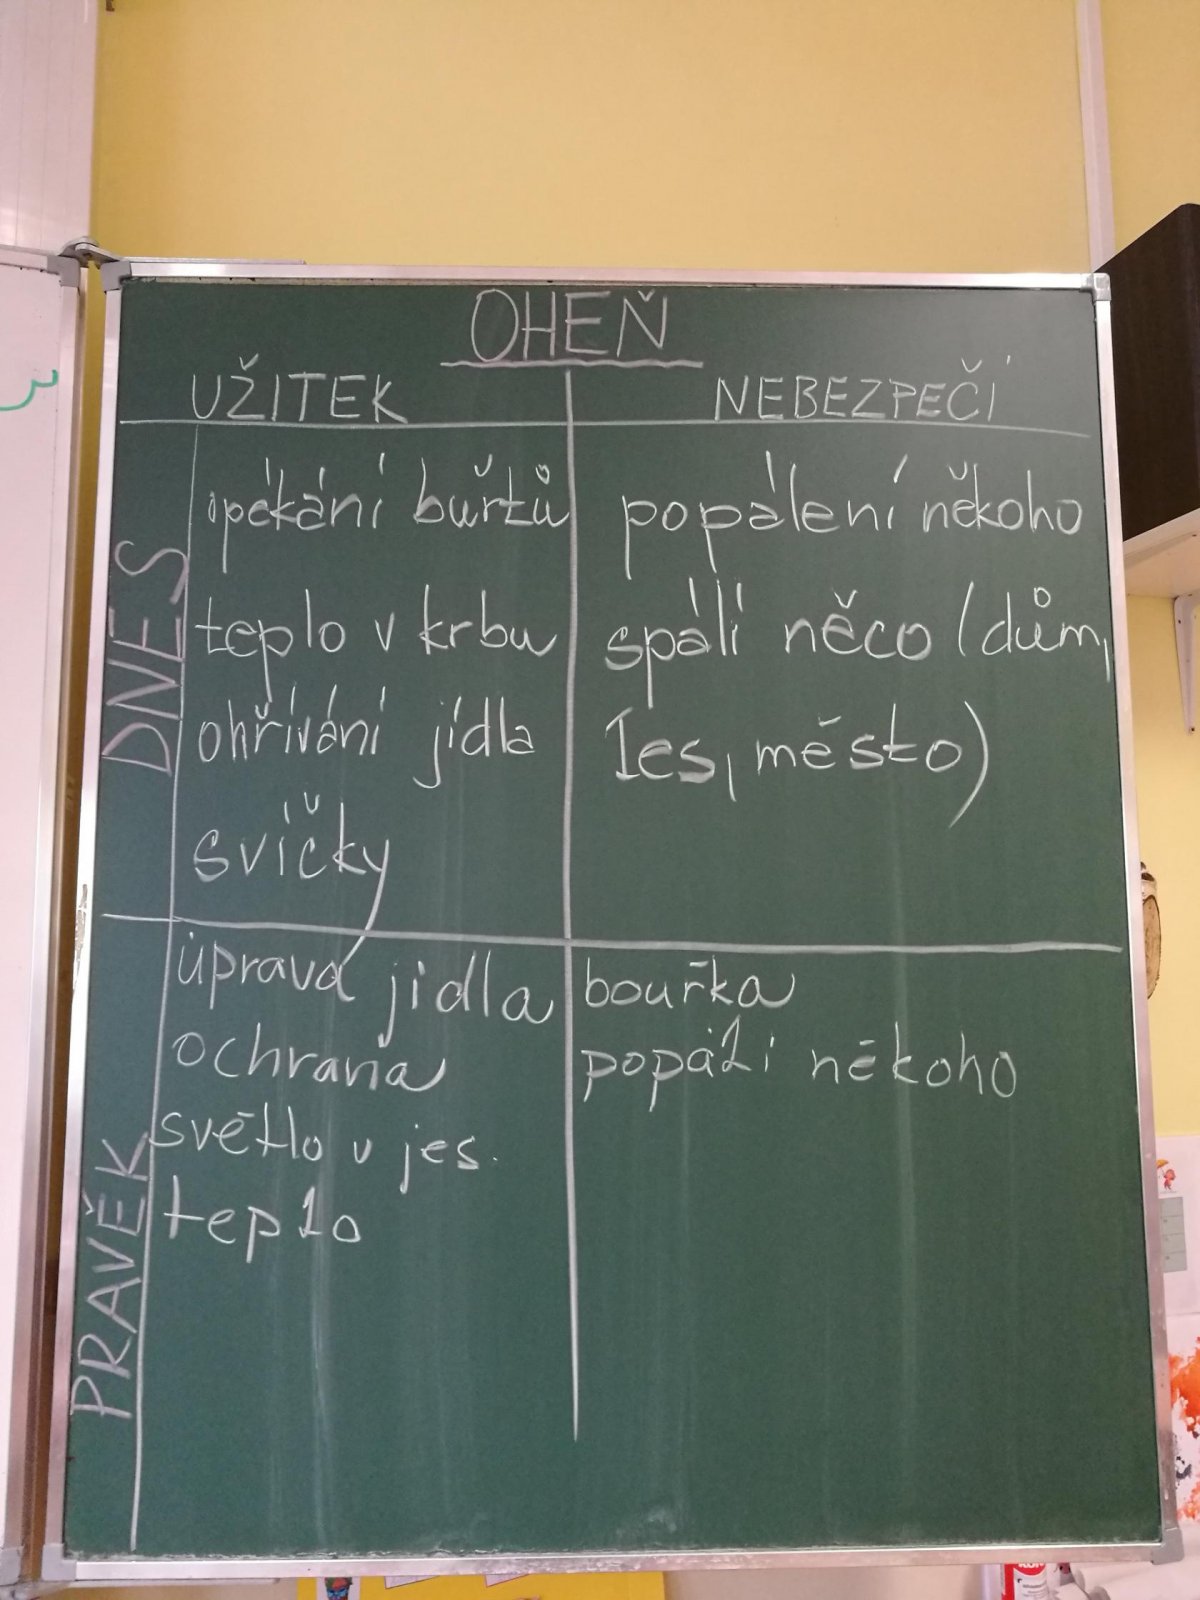 OHEŇ
UŽITEK
NEBEZPEČÍ
DNES
opékání buřtů
teplo v krbu
ohřívání jídla
svíčky
popálení někoho
spálí něco (dům,
les, město)
PRAVĚK
úprava jídla
ochrana
světlo v jes.
teplo
bouřka
popálí někoho